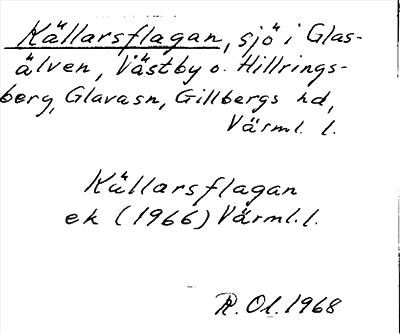 Källarsflagan, sjö i Glas-
älven, Västby o. Hillrings-
berg, Glavasn, Gillbergs hd,
Värml. l.
Källarsflagan
ek (1966) Värml. l.
R. Ol. 1968